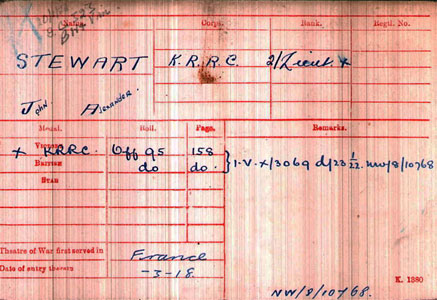 Name. Corps. Rank. Regtl. No.
STEWART K.R.R.C. 2/Lieut x
John Alexander.
Medal. Roll. Page. Remarks.
x Victory KRRC. Off 95 158
British do do. } I.V. x/3069 d/23 1/22. NW/8/10768
Star
Theatre of War first served in France
Date of entry therein -3-18.
K. 1380
NW/8/10768.